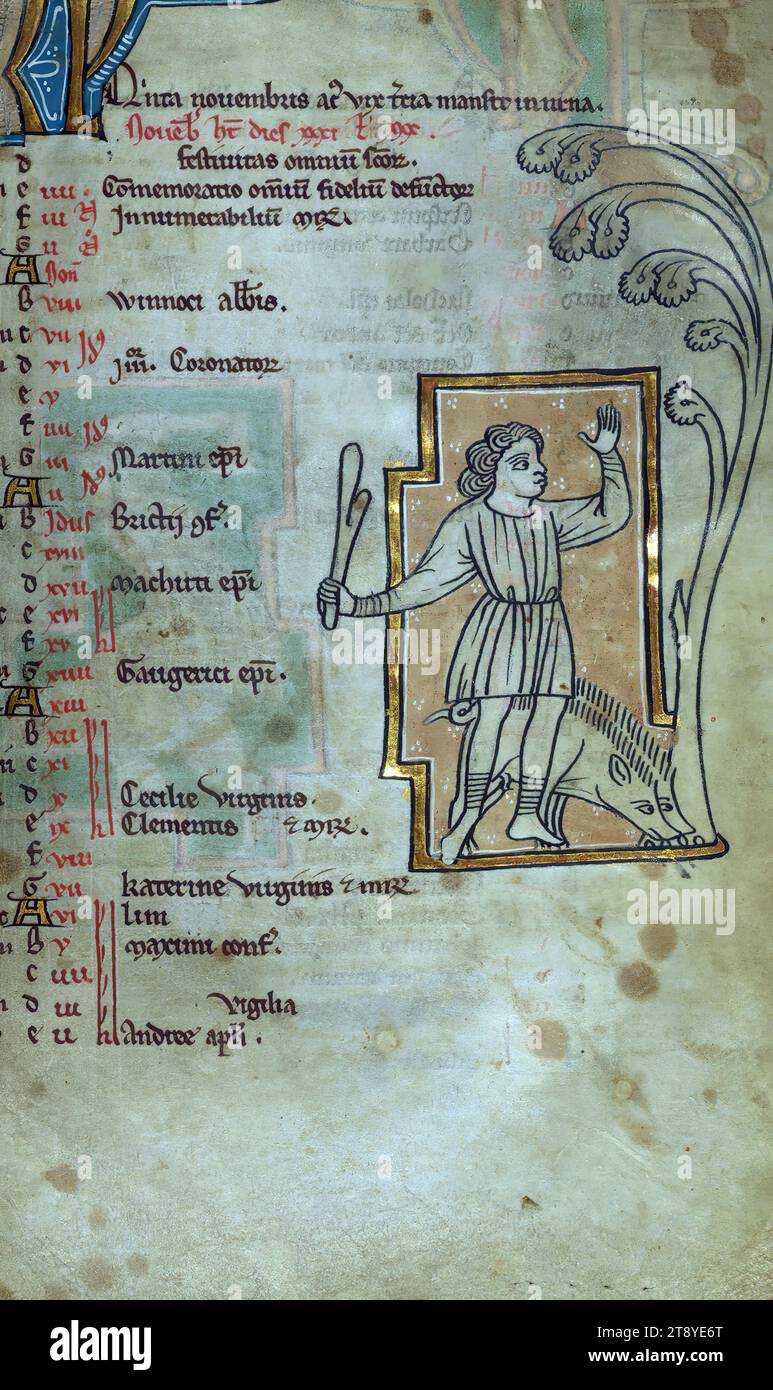 Quinta nouembris ac' vix t'cia mansit in urna.
Nouēb' ht dies xxxi l' xxx.
d festiuitas omniū scōr.
e iiii. Cōmemoratio omīū fidelium defunctor
f iii N Innumerabilium mr.
G ii d
A Non
B viii Winnoci abb'is.
c vii id
d vi id iiiior. Coronator
e v
f iiii id
G iii Martini ep'i
A ii id
B idus Brictii 9f'.
c xviii
d xvii machuti ep'i
e xvi
f xv
G xiiii Gaugerici ep'i.
A xiii
b xii
c xi
d x Cecilie uirginis.
e ix Clementis & mr.
f viii
G vii katerine uirginis & mr
A vi lini
b v maximi conf'.
c iiii
d iii vigilia
e ii Andree ap'li.
alamy
Image ID: 2T8YE6T
www.alamy.com